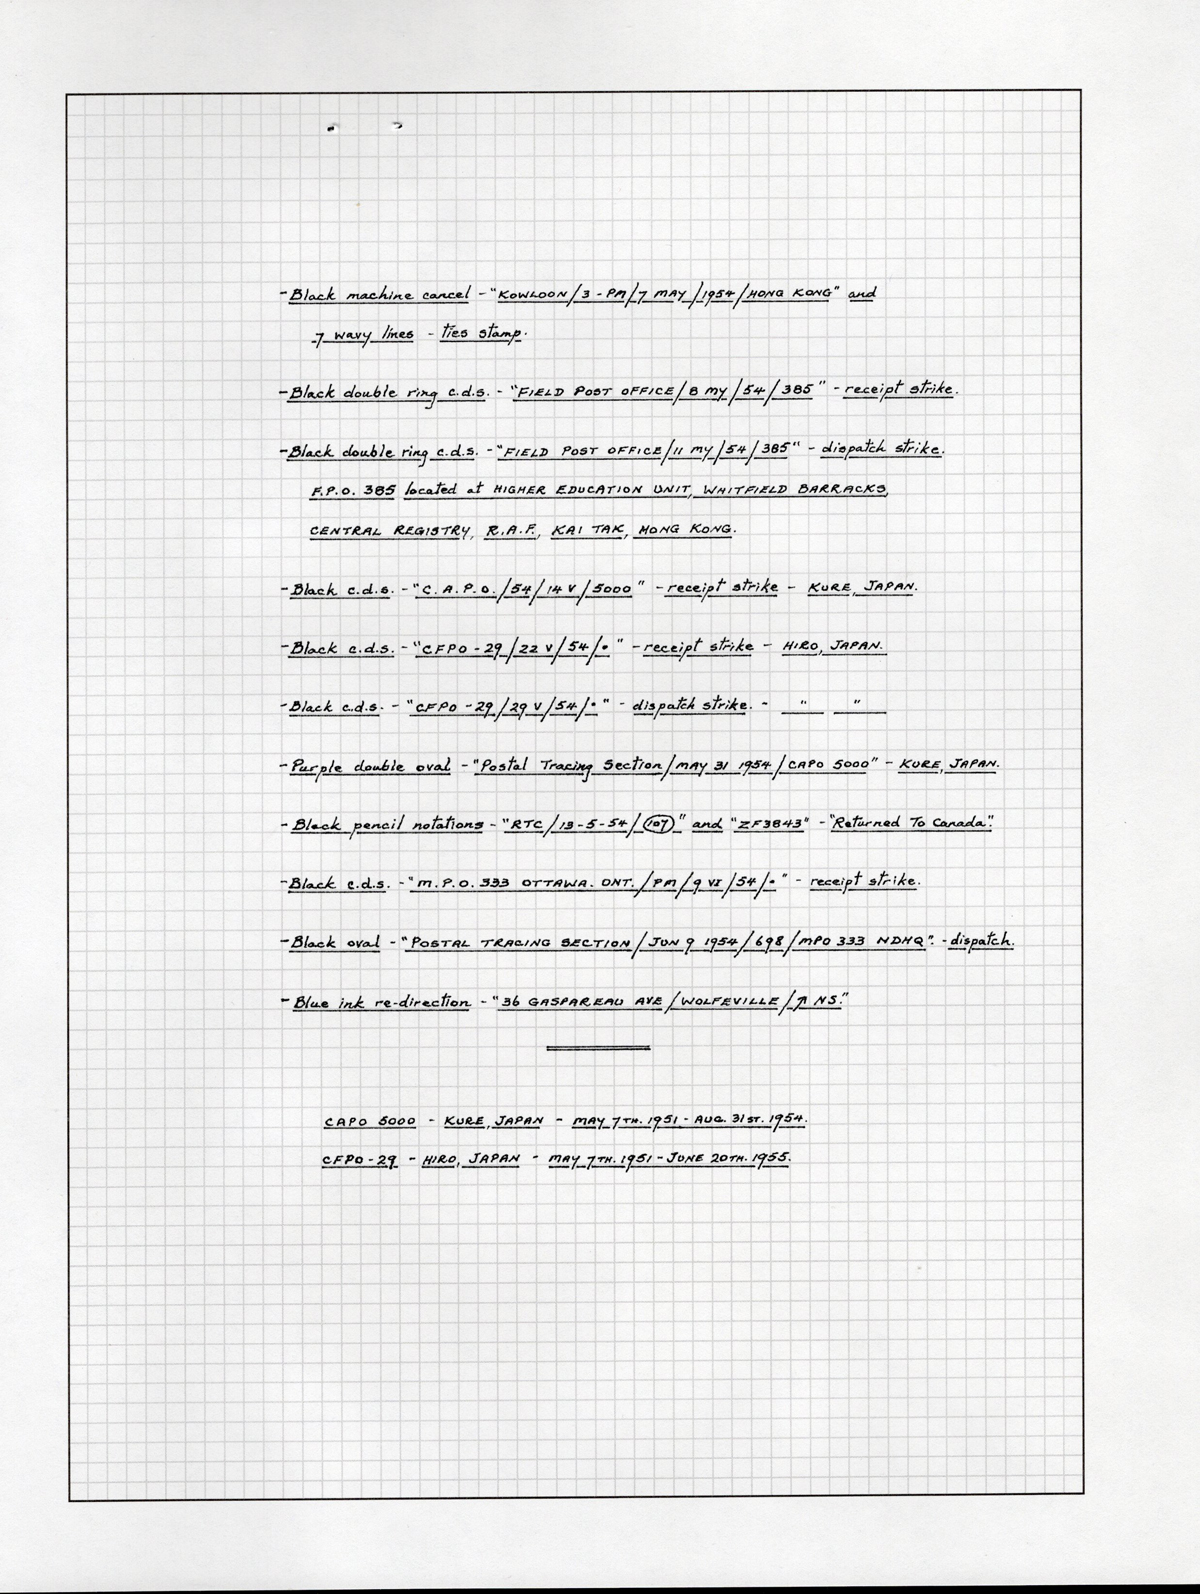 -Black machine cancel - "KOWLOON/3-PM/7 MAY/1954/HONG KONG" and
7 wavy lines - ties stamp.
-Black double ring c.d.s. - "FIELD POST OFFICE/8 MY/54/385" - receipt strike.
-Black double ring c.d.s. - "FIELD POST OFFICE/11 MY/54/385" - dispatch strike.
F.P.O. 385 located at HIGHER EDUCATION UNIT, WHITFIELD BARRACKS,
CENTRAL REGISTRY, R.A.F., KAI TAK, HONG KONG.
-Black c.d.s. - "C.A.P.O./54/14 V/5000" - receipt strike - KURE, JAPAN.
-Black c.d.s. - "CFPO-29/22 V/54/•" - receipt strike - HIRO, JAPAN.
-Black c.d.s. - "CFPO-29/29 V/54/•" - dispatch strike. - " "
-Purple double oval - "Postal Tracing Section/MAY 31 1954/CAPO 5000" - KURE, JAPAN.
-Black pencil notations - "RTC/13-5-54/107" and "ZF3843" - "Returned To Canada".
-Black c.d.s. - "M.P.O. 333 OTTAWA. ONT./PM/9 VI/54/•" - receipt strike.
-Black oval - "POSTAL TRACING SECTION/JUN 9 1954/698/MPO 333 NDHQ". - dispatch.
-Blue ink re-direction - "36 GASPAREAU AVE/WOLFEVILLE/↗ NS."
CAPO 5000 - KURE, JAPAN - MAY 7TH. 1951 - AUG. 31ST. 1954.
CFPO-29 - HIRO, JAPAN - MAY 7TH. 1951 - JUNE 20TH. 1955.